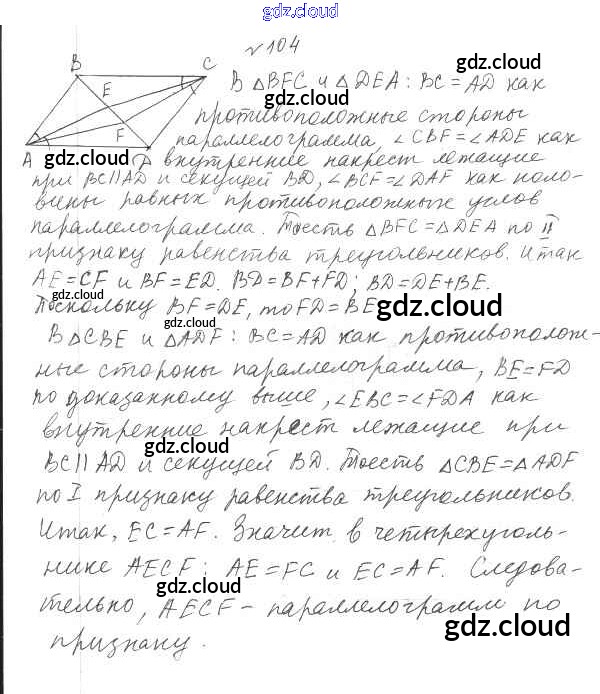 gdz.cloud
№104
B C
E
F
A D
В △BFC и △DEA: BC = AD как
противоположные стороны
параллелограмма, ∠CBF = ∠ADE как
внутренние накрест лежащие
при BC || AD и секущей BD, ∠BCF = ∠DAF как поло-
вины равных противоположных углов
параллелограмма. То есть △BFC = △DEA по II
признаку равенства треугольников. Итак
AE = CF и BF = ED. BD = BF + FD; BD = DE + BE.
Поскольку BF = DE, то FD = BE
В △CBE и △ADF: BC = AD как противополож-
ные стороны параллелограмма, BE = FD
по доказанному выше, ∠EBC = ∠FDA как
внутренние накрест лежащие при
BC || AD и секущей BD. То есть △CBE = △ADF
по I признаку равенства треугольников.
Итак, EC = AF. Значит в четырехуголь-
нике AECF: AE = FC и EC = AF. Следова-
тельно, AECF – параллелограмм по
признаку.
gdz.cloud
gdz.cloud
gdz.cloud
gdz.cloud
gdz.cloud
gdz.cloud
gdz.cloud
gdz.cloud
gdz.cloud
gdz.cloud
gdz.cloud